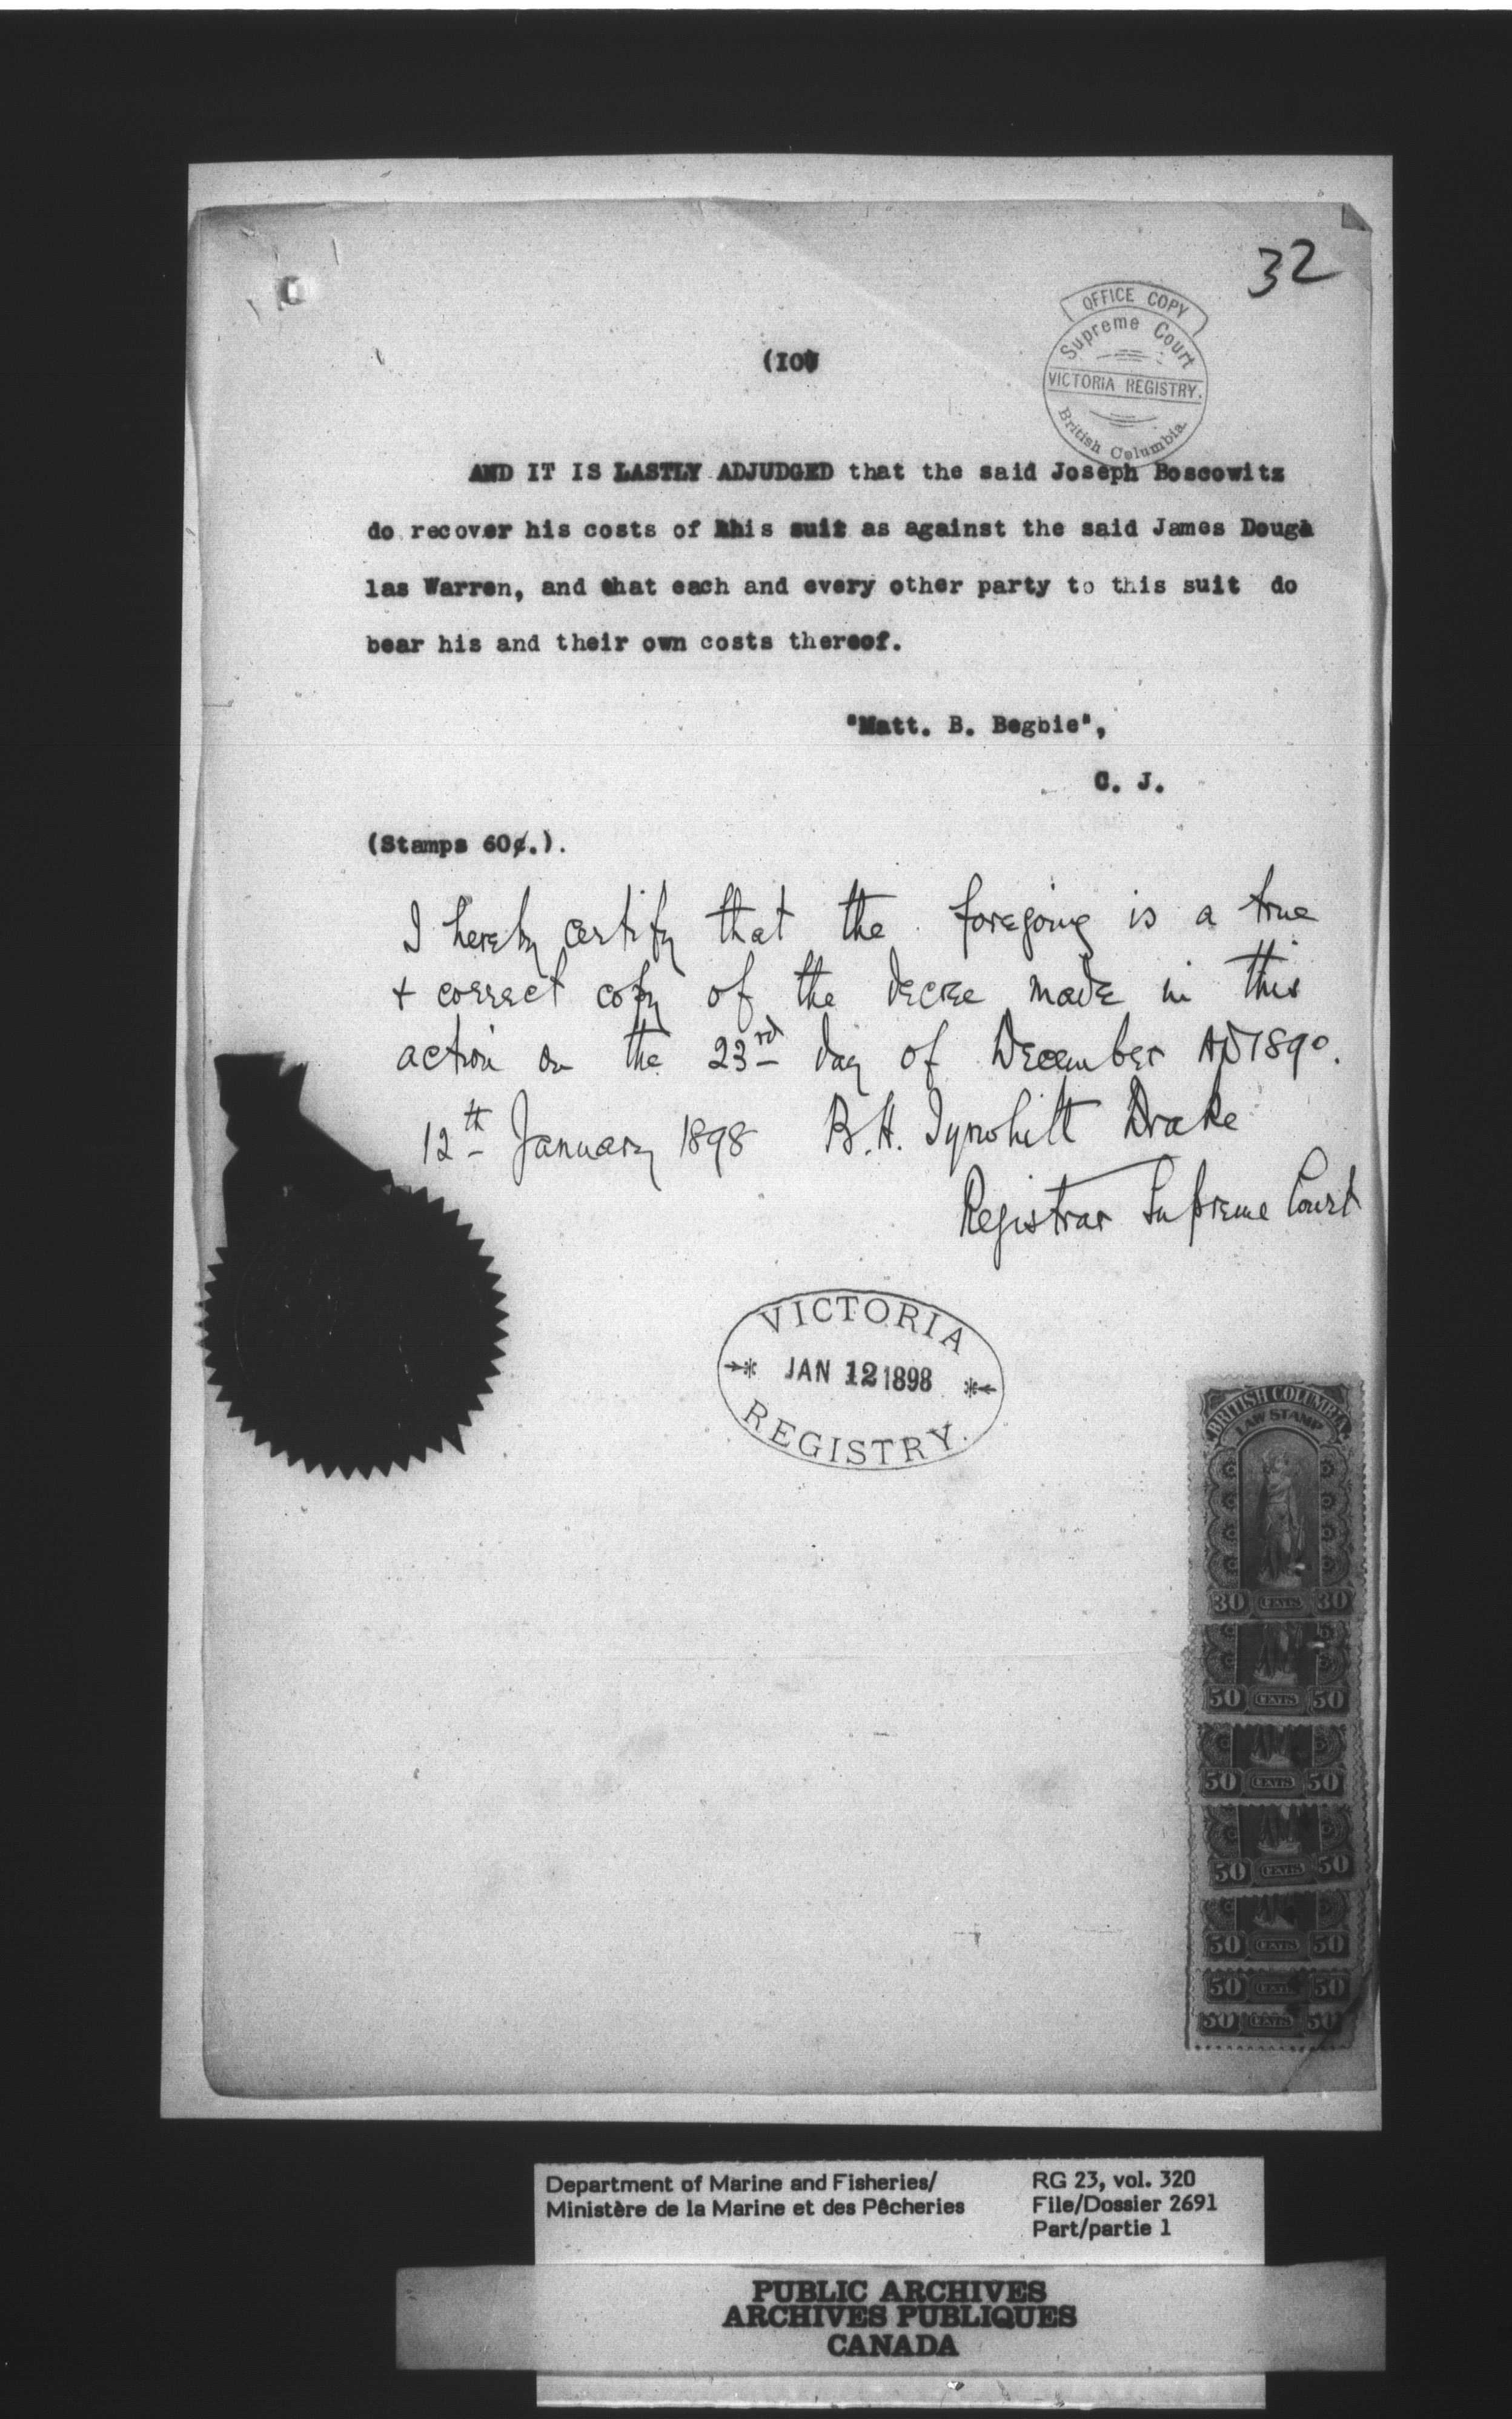 32
OFFICE COPY
Supreme Court
VICTORIA REGISTRY.
British Columbia
(10)
AND IT IS LASTLY ADJUDGED that the said Joseph Boscowitz
do recover his costs of this suit as against the said James Doug
las Warren, and that each and every other party to this suit do
bear his and their own costs thereof.
"Matt. B. Begbie",
C. J.
(Stamps 60¢.).
I hereby certify that the foregoing is a true
+ correct copy of the decree made in this
action on the 23rd day of December AD 1890.
12th January 1898 B.H. Tyrwhitt Drake
Registrar Supreme Court
VICTORIA
JAN 12 1898
REGISTRY.
BRITISH COLUMBIA
LAW STAMP
30 CENTS 30
50 CENTS 50
50 CENTS 50
50 CENTS 50
50 CENTS 50
50 CENTS 50
50 CENTS 50
Department of Marine and Fisheries/
Ministère de la Marine et des Pêcheries
RG 23, vol. 320
File/Dossier 2691
Part/partie 1
PUBLIC ARCHIVES
ARCHIVES PUBLIQUES
CANADA